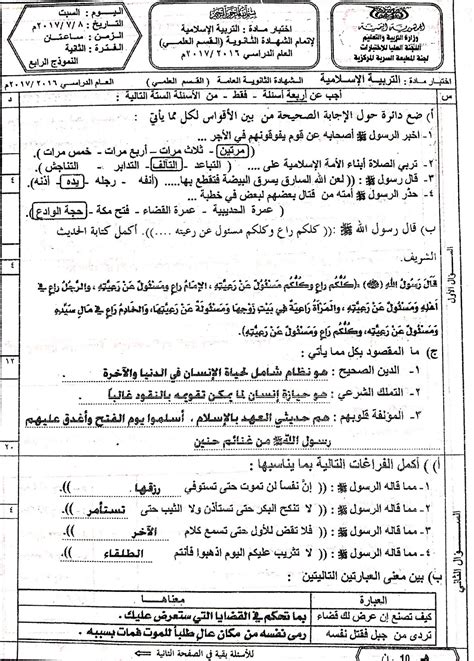 بسم الله الرحمن الرحيم
وزارة التربية والتعليم
اللجنة العليا للاختبارات
لجنة المطبعة السرية المركزية
اختبار مادة : التربية الإسلامية
لإتمام الشهادة الثانوية (القسم العلمي)
للعام الدراسي ٢٠١٦ / ٢٠١٧م
اليوم : السبت
التاريخ : ٢٠١٧/٧/٨م
الزمن : ساعتان
الفترة : الثانية
النموذج الرابع
اختبار مادة : التربية الإسلامية الشهادة الثانوية العامة ( القسم العلمي ) العام الدراسي ٢٠١٦ - ٢٠١٧م
س أجب عن أربعة أسئلة - فقط - من الأسئلة الستة التالية : د
السؤال الأول
أ) ضع دائرة حول الإجابة الصحيحة من بين الأقواس لكل مما يأتي :
١- اخبر الرسول ﷺ أصحابه عن قوم يفوقونهم في الأجر ...
(مرتين - ثلاث مرات - أربع مرات - خمس مرات).
٢- تربي الصلاة أبناء الأمة الإسلامية على .... ( التباعد - التآلف - التدابر - التناجش ).
٣- قال رسول ﷺ : (( لعن الله السارق يسرق البيضة فتقطع بها.... (أنفه - رجله - يده - أذنه).
٤- حذر الرسول ﷺ أمته من قتال بعضهم لبعض في خطبة ...
( عمرة الحديبية - عمرة القضاء - فتح مكة - حجة الوادع ).
٤
ب) قال رسول الله ﷺ :(( كلكم راع وكلكم مسئول عن رعيته ....)). أكمل كتابة الحديث
الشريف.
قال رسول الله (ﷺ) :(كلكم راع وكلكم مسئول عن رعيته ، الإمام راع ومسئول عن رعيته ، والرجل راع في
أهله ومسئول عن رعيته ، والمرأة راعية في بيت زوجها ومسئولة عن رعيتها، والخادم راع في مال سيده
ومسئول عن رعيته، وكلكم راع ومسئول عن رعيته).
٤
ج) ما المقصود بكل مما يأتي :
١- الدين الصحيح : هو نظام شامل لحياة الإنسان في الدنيا والآخرة
٢- التملك الشرعي : هو حيازة إنسان لما يمكن تقويمه بالنقود غالباً
٣- المؤلفة قلوبهم : هم حديثي العهد بالإسلام ، أسلموا يوم الفتح وأغدق عليهم
رسول الله ﷺ من غنائم حنين
١٢
٢٠
السؤال الثاني
أ) أكمل الفراغات التالية بما يناسبها :
١- مما قاله الرسول ﷺ : (( إن نفساً لن تموت حتى تستوفي رزقها )).
٢- مما قاله الرسول ﷺ : (( لا تنكح البكر حتى تستأذن ولا الثيب حتى تستأمر )).
٣- مما قاله الرسول ﷺ : (( فلا تقض للأول حتى تسمع كلام الآخر )).
٤- مما قاله الرسول ﷺ : (( لا تثريب عليكم اليوم اذهبوا فأنتم الطلقاء )).
٤
ب) بين معنى العبارتين التاليتين :
العبارة معناها
كيف تصنع إن عرض لك قضاء بما تحكم في القضايا التي ستعرض عليك .
تردى من جبل فقتل نفسه رمى نفسه من مكان عال طلباً للموت فمات بسببه .
للأسئلة بقية في الصفحة التالية